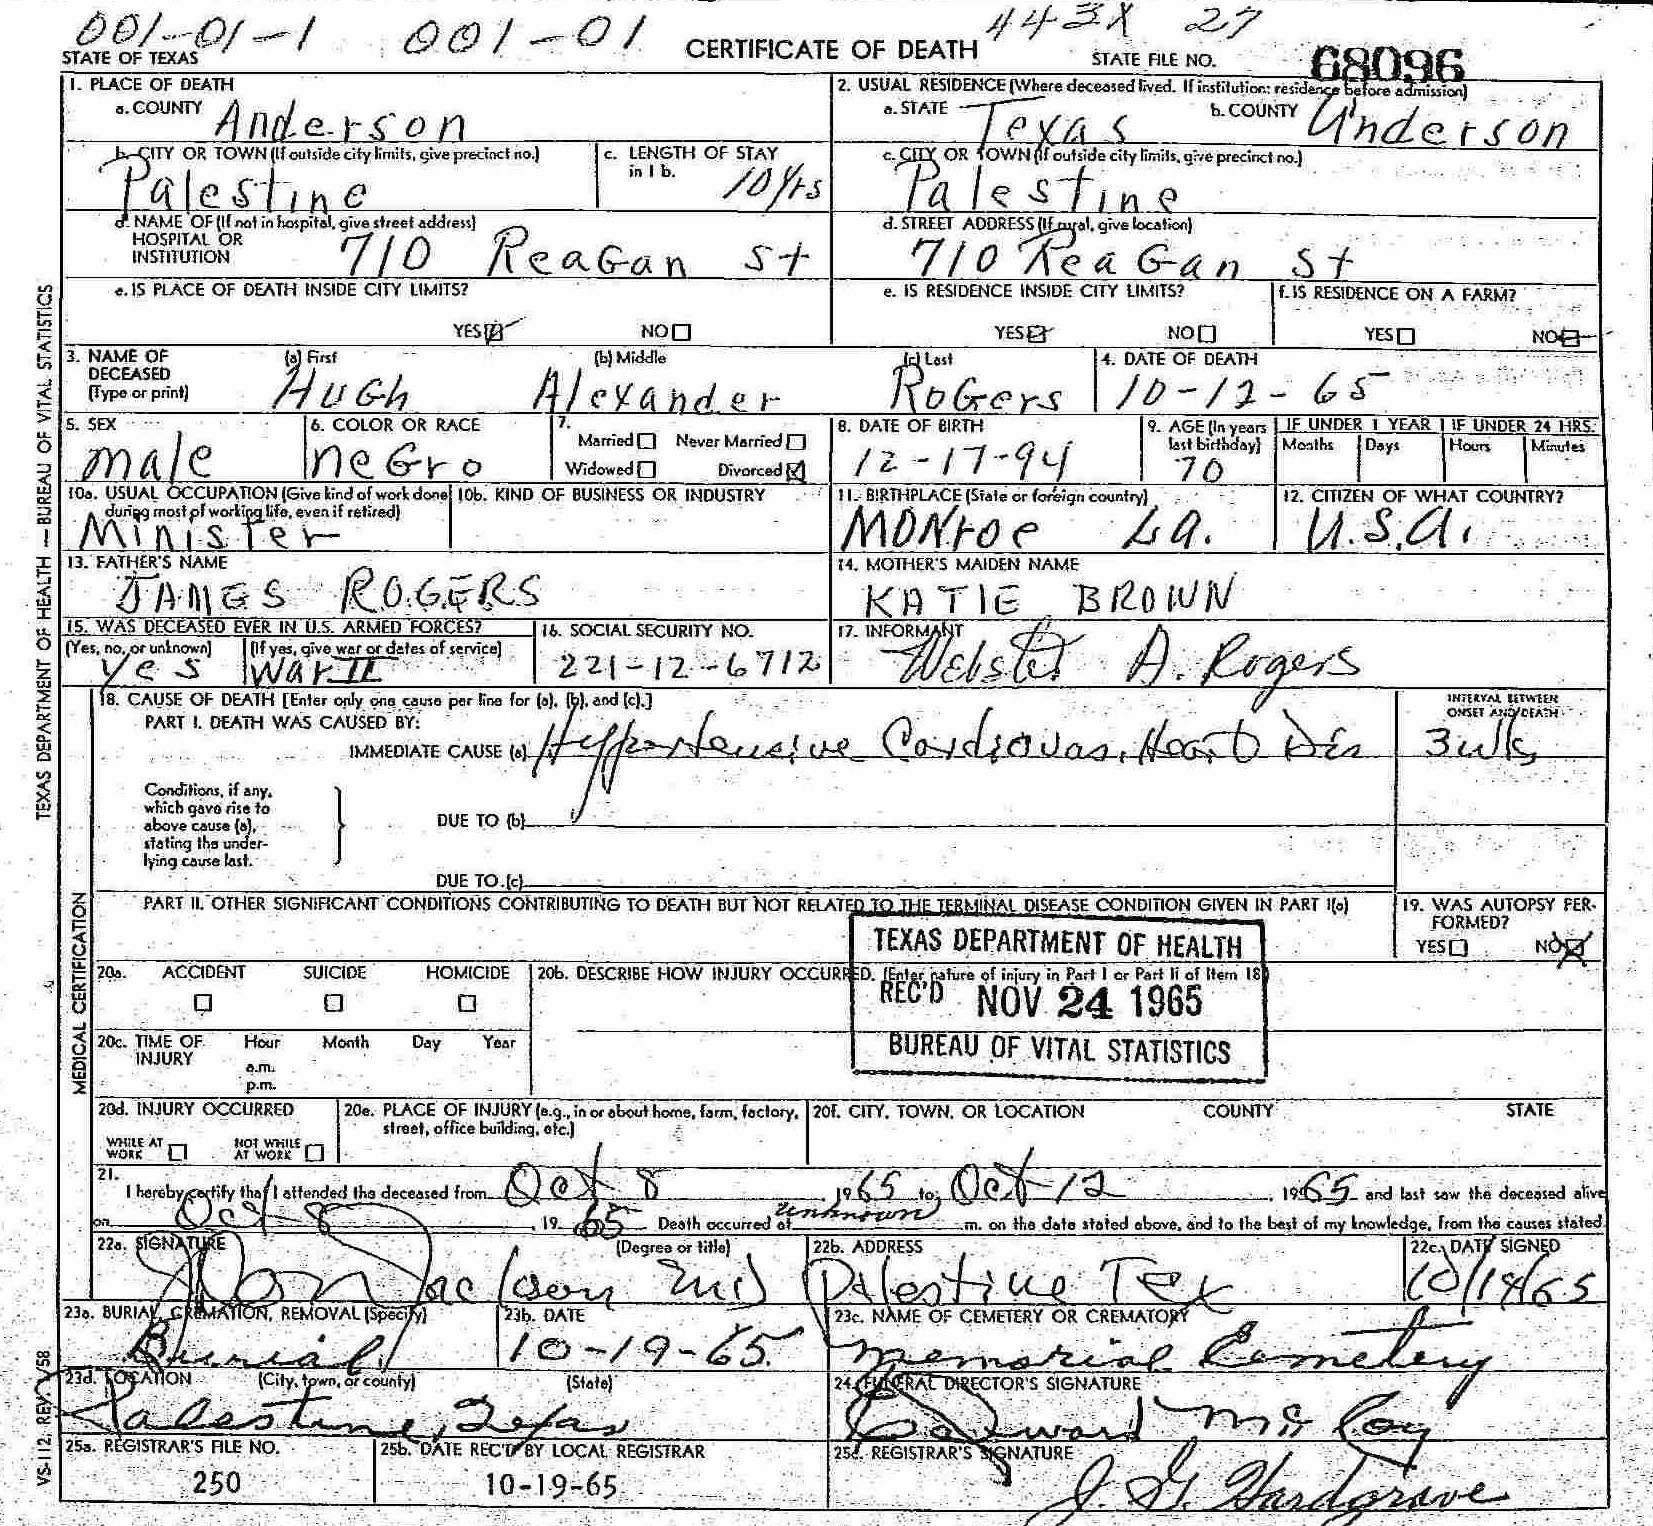 001-01-1 001-01 443X 27
STATE OF TEXAS CERTIFICATE OF DEATH STATE FILE NO. 68096
1. PLACE OF DEATH
a. COUNTY Anderson
2. USUAL RESIDENCE (Where deceased lived. If institution: residence before admission)
a. STATE Texas b. COUNTY Anderson
b. CITY OR TOWN (If outside city limits, give precinct no.)
Palestine
c. LENGTH OF STAY
in 1 b. 10 yrs
c. CITY OR TOWN (If outside city limits, give precinct no.)
Palestine
d. NAME OF (If not in hospital, give street address)
HOSPITAL OR
INSTITUTION 710 Reagan St
d. STREET ADDRESS (If rural, give location)
710 Reagan St
e. IS PLACE OF DEATH INSIDE CITY LIMITS?
YES NO
e. IS RESIDENCE INSIDE CITY LIMITS?
YES NO
f. IS RESIDENCE ON A FARM?
YES NO
3. NAME OF
DECEASED
(Type or print)
(a) First (b) Middle (c) Last
Hugh Alexander Rogers
4. DATE OF DEATH
10-12-65
5. SEX
male
6. COLOR OR RACE
negro
7.
Married Never Married
Widowed Divorced
8. DATE OF BIRTH
12-17-94
9. AGE (In years
last birthday)
70
IF UNDER 1 YEAR IF UNDER 24 HRS.
Months Days Hours Minutes
10a. USUAL OCCUPATION (Give kind of work done
during most of working life, even if retired)
Minister
10b. KIND OF BUSINESS OR INDUSTRY
11. BIRTHPLACE (State or foreign country)
Monroe La.
12. CITIZEN OF WHAT COUNTRY?
U.S.A.
13. FATHER'S NAME
JAMES ROGERS
14. MOTHER'S MAIDEN NAME
KATIE BROWN
15. WAS DECEASED EVER IN U.S. ARMED FORCES?
(Yes, no, or unknown) (If yes, give war or dates of service)
yes War II
16. SOCIAL SECURITY NO.
221-12-6712
17. INFORMANT
Webster A. Rogers
18. CAUSE OF DEATH [Enter only one cause per line for (a), (b), and (c).]
PART I. DEATH WAS CAUSED BY:
IMMEDIATE CAUSE (a) Hypertensive Cardiovas. Heart Dis
INTERVAL BETWEEN
ONSET AND DEATH
3 wks
Conditions, if any,
which gave rise to
above cause (a),
stating the under-
lying cause last.
DUE TO (b)
DUE TO (c)
PART II. OTHER SIGNIFICANT CONDITIONS CONTRIBUTING TO DEATH BUT NOT RELATED TO THE TERMINAL DISEASE CONDITION GIVEN IN PART I(a)
19. WAS AUTOPSY PER-
FORMED?
YES NO
TEXAS DEPARTMENT OF HEALTH
REC'D NOV 24 1965
BUREAU OF VITAL STATISTICS
20a. ACCIDENT SUICIDE HOMICIDE
20b. DESCRIBE HOW INJURY OCCURRED. (Enter nature of injury in Part I or Part II of Item 18)
20c. TIME OF
INJURY
Hour Month Day Year
a.m.
p.m.
20d. INJURY OCCURRED
WHILE AT
WORK
NOT WHILE
AT WORK
20e. PLACE OF INJURY (e.g., in or about home, farm, factory,
street, office building, etc.)
20f. CITY, TOWN, OR LOCATION COUNTY STATE
21.
I hereby certify that I attended the deceased from Oct 8, 1965 to Oct 12, 1965 and last saw the deceased alive
on Oct 8, 1965 Death occurred at unknown m. on the date stated above, and to the best of my knowledge, from the causes stated.
22a. SIGNATURE (Degree or title)
Don Jackson MD
22b. ADDRESS
Palestine Tex
22c. DATE SIGNED
10/14/65
23a. BURIAL, CREMATION, REMOVAL (Specify)
Burial
23b. DATE
10-19-65
23c. NAME OF CEMETERY OR CREMATORY
Memorial Cemetery
23d. LOCATION (City, town, or county) (State)
Palestine, Texas
24. FUNERAL DIRECTOR'S SIGNATURE
Edward McCoy
25a. REGISTRAR'S FILE NO.
250
25b. DATE REC'D BY LOCAL REGISTRAR
10-19-65
25c. REGISTRAR'S SIGNATURE
J. G. Hardgrave
TEXAS DEPARTMENT OF HEALTH — BUREAU OF VITAL STATISTICS
MEDICAL CERTIFICATION